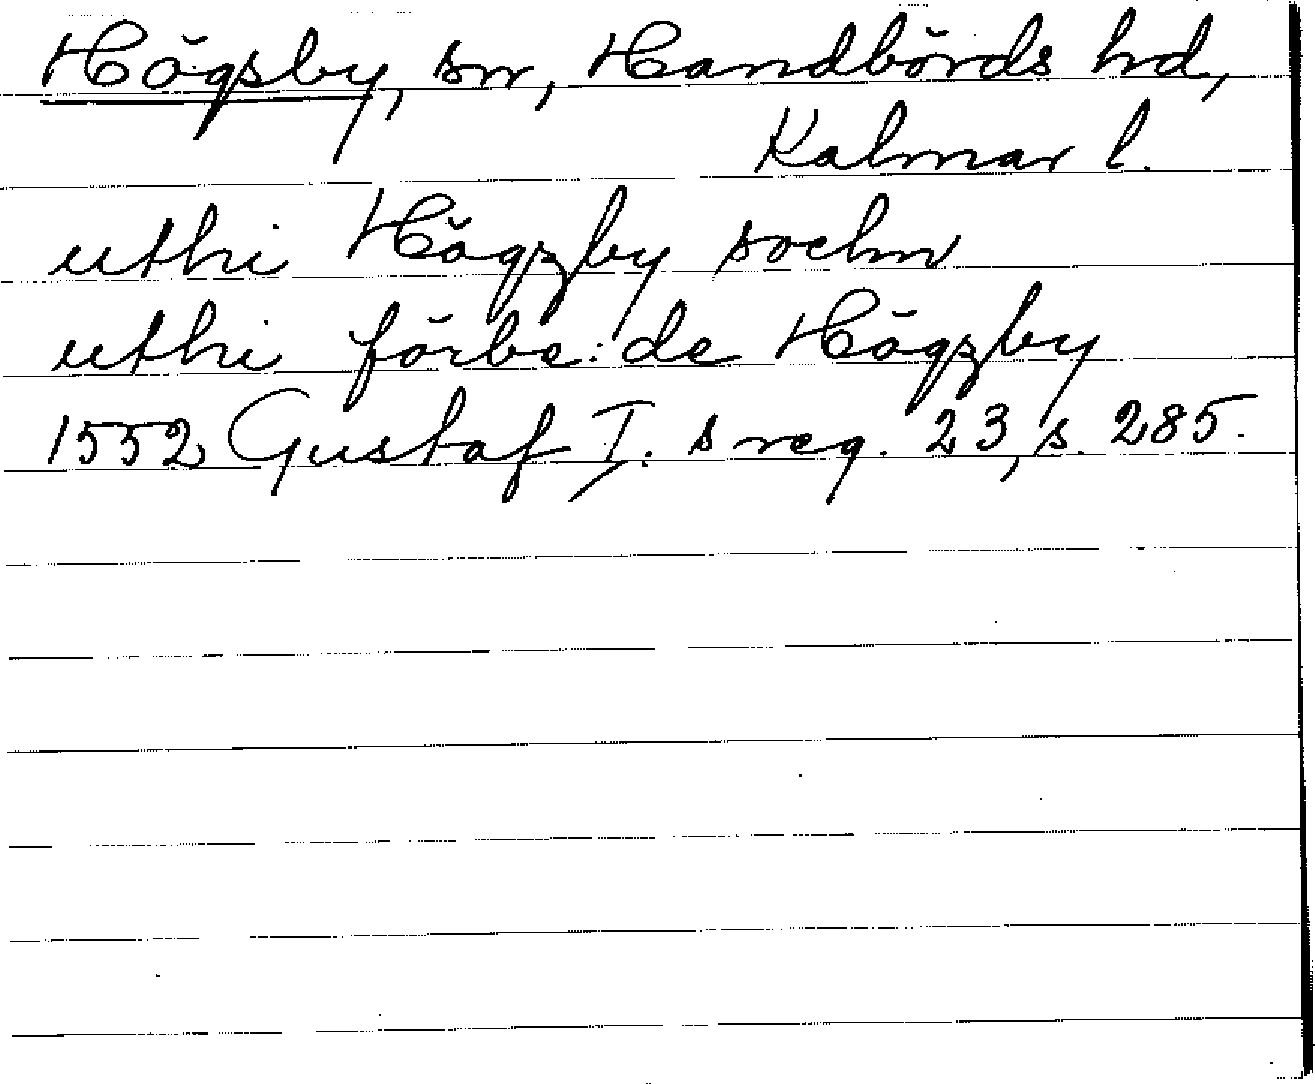 Högsby, sn, Handbörds hd,
Kalmar l.
uthi Högzby sochn
uthi förbe:de Högzby
1552 Gustaf I:s reg. 23, s. 285.